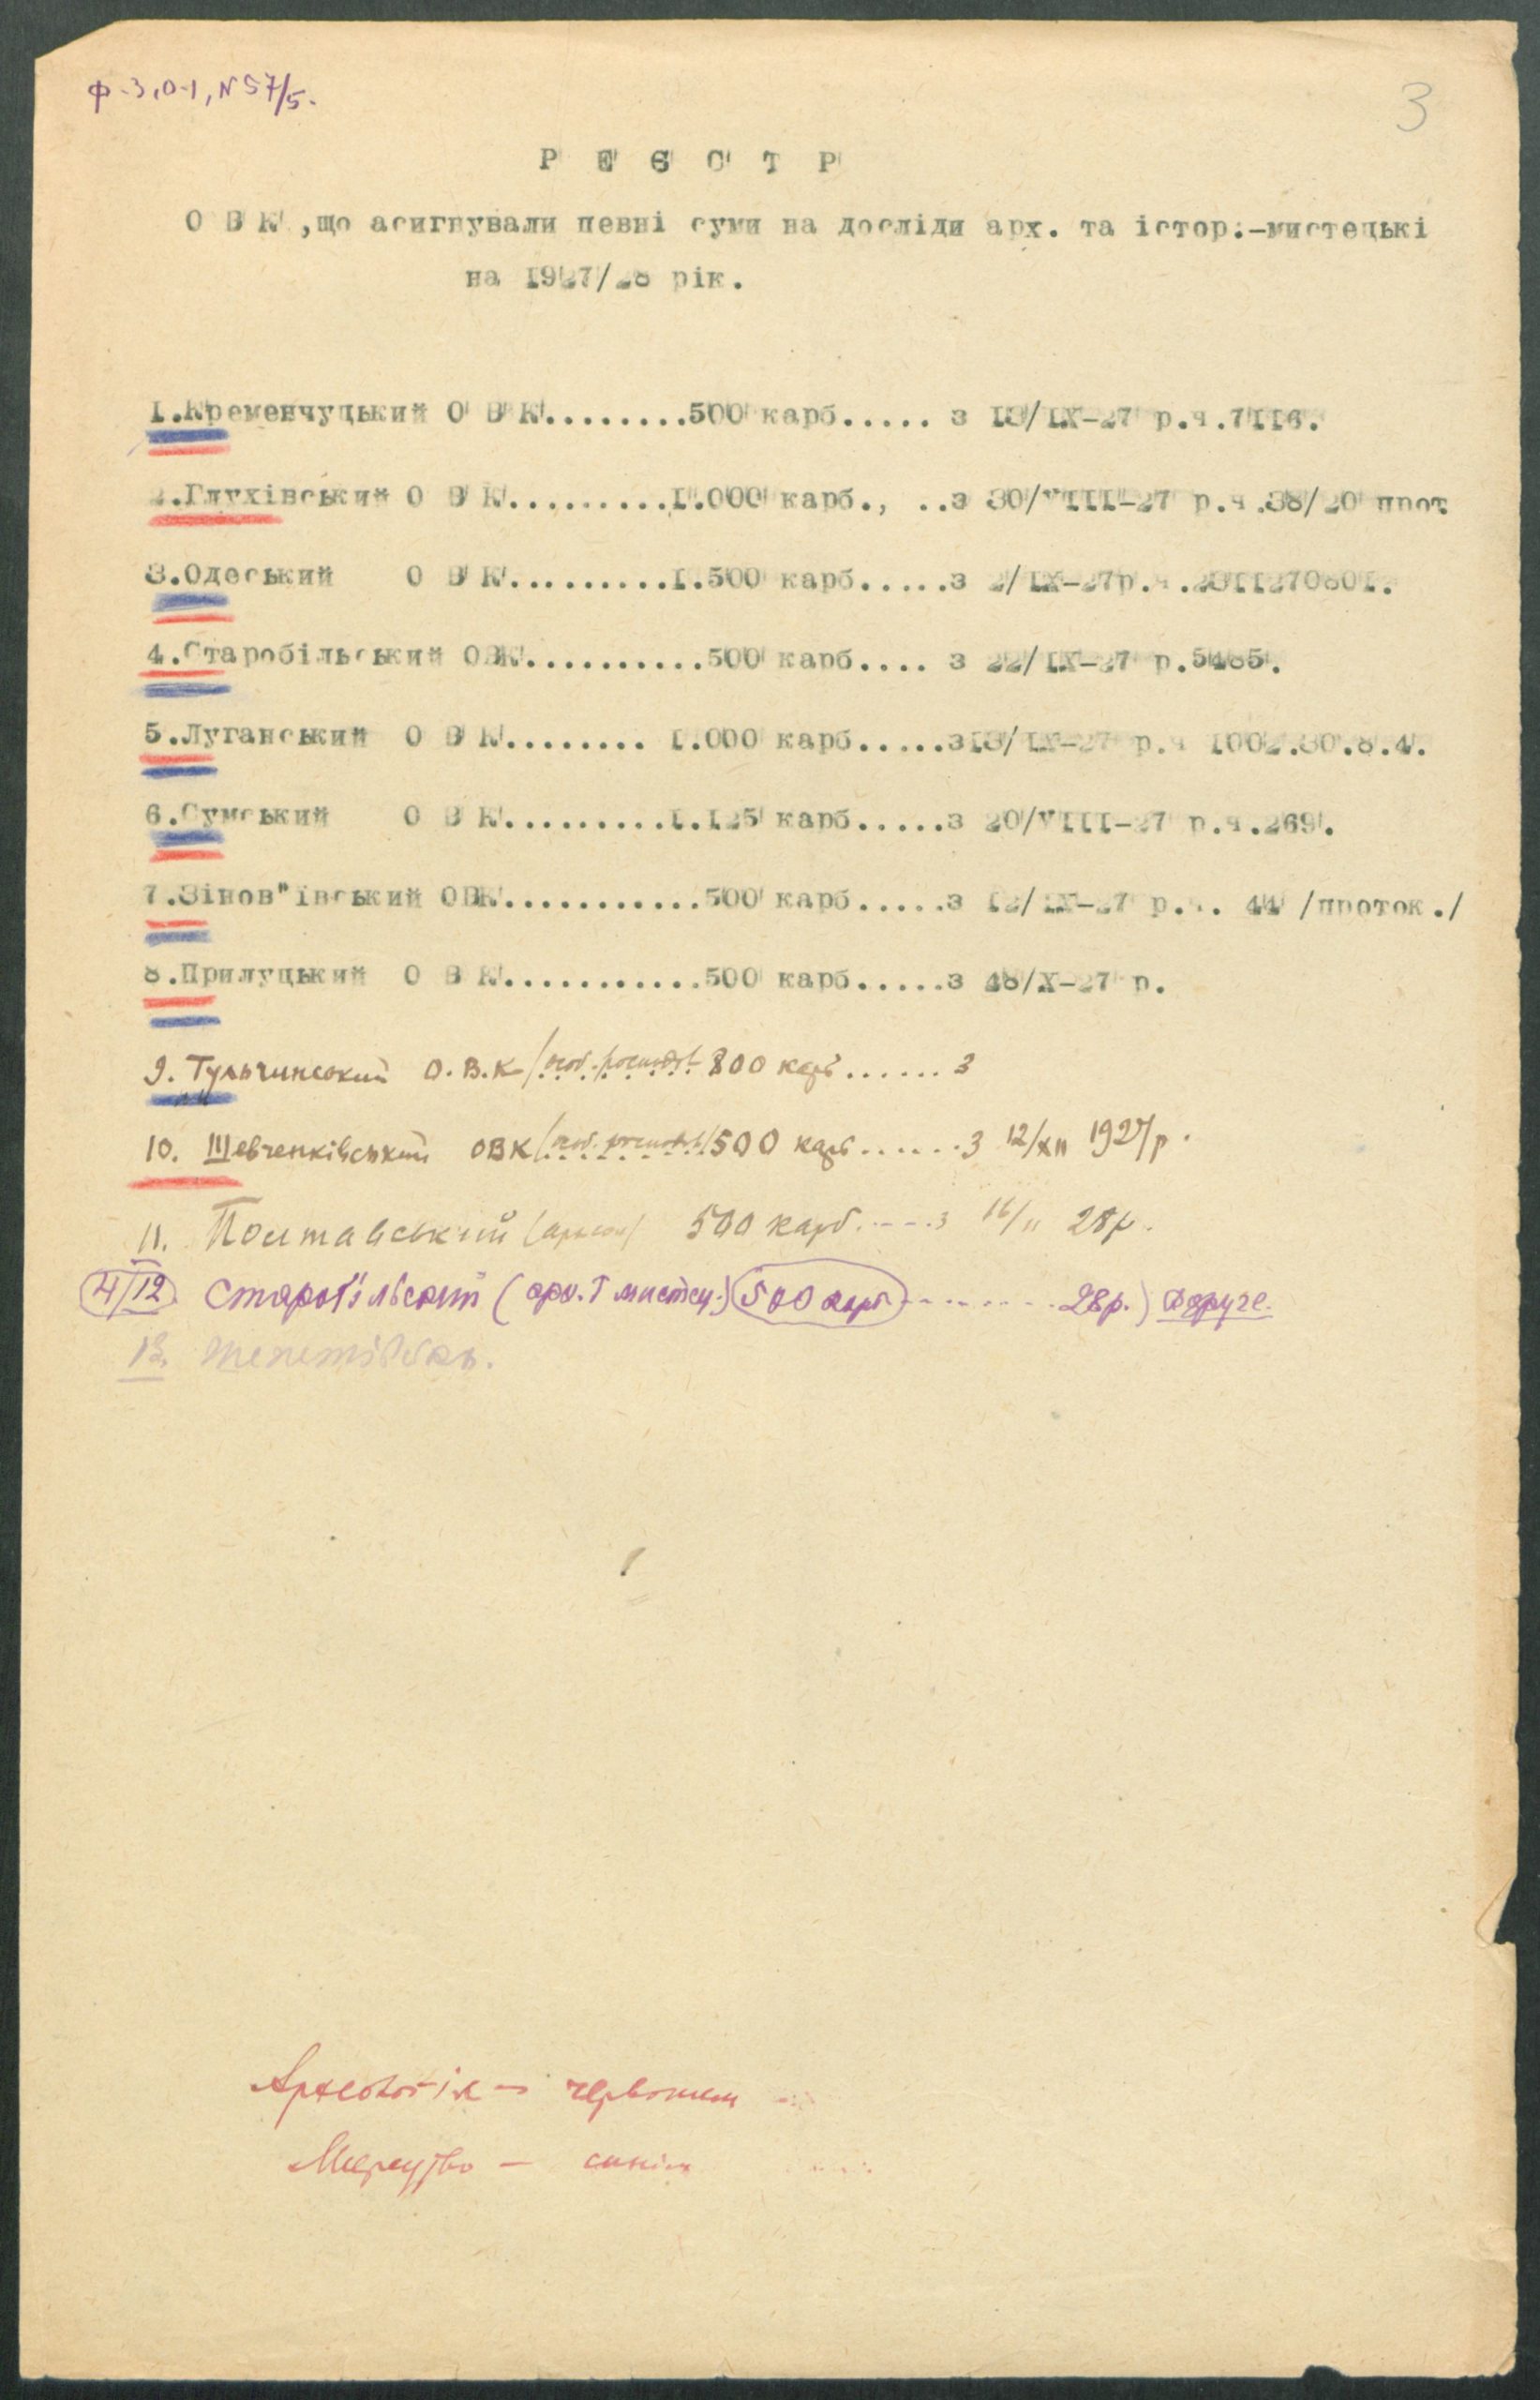 ф-3, О-1, N 57/5.
3
Р Е Є С Т Р
О В К ,що асигнували певні суми на досліди арх. та істор.-мистецькі
на 1927/28 рік.
I.Кременчуцький О В К........500 карб..... з I3/IX-27 р.ч.7II6.
2.Глухівський О В К.........I.000 карб., ..з 30/VIII-27 р.ч.38/20 прот.
3.Одеський О В К.........I.500 карб.....з 2/IX-27р.ч.
4.Старобільський ОВК..........500 карб.... з 22/IX-27 р.5485.
5.Луганський О В К........ I.000 карб.....зI3/IX-27 р.ч I002.30.8.4.
6.Сумський О В К.........I.I25 карб.....з 20/VIII-27 р.ч.269.
7.Зінов"ївський ОВК...........500 карб.....з I2/IX-27 р.ч. 44 /проток./
8.Прилуцький О В К...........500 карб.....з 18/X-27 р.
9. Тульчинський О.В.К 800 карб......з
10. Шевченківський ОВК 500 карб......з 12/XII 1927 р.
11. Полтавський 500 карб.....з 16/II 28р.
4/12 Старобільський (арх. і мистец.) 500 карб......... 28р.) Вдруге.
13. Шепетівськ.
Археологія — червоним
Мистецтво — синім